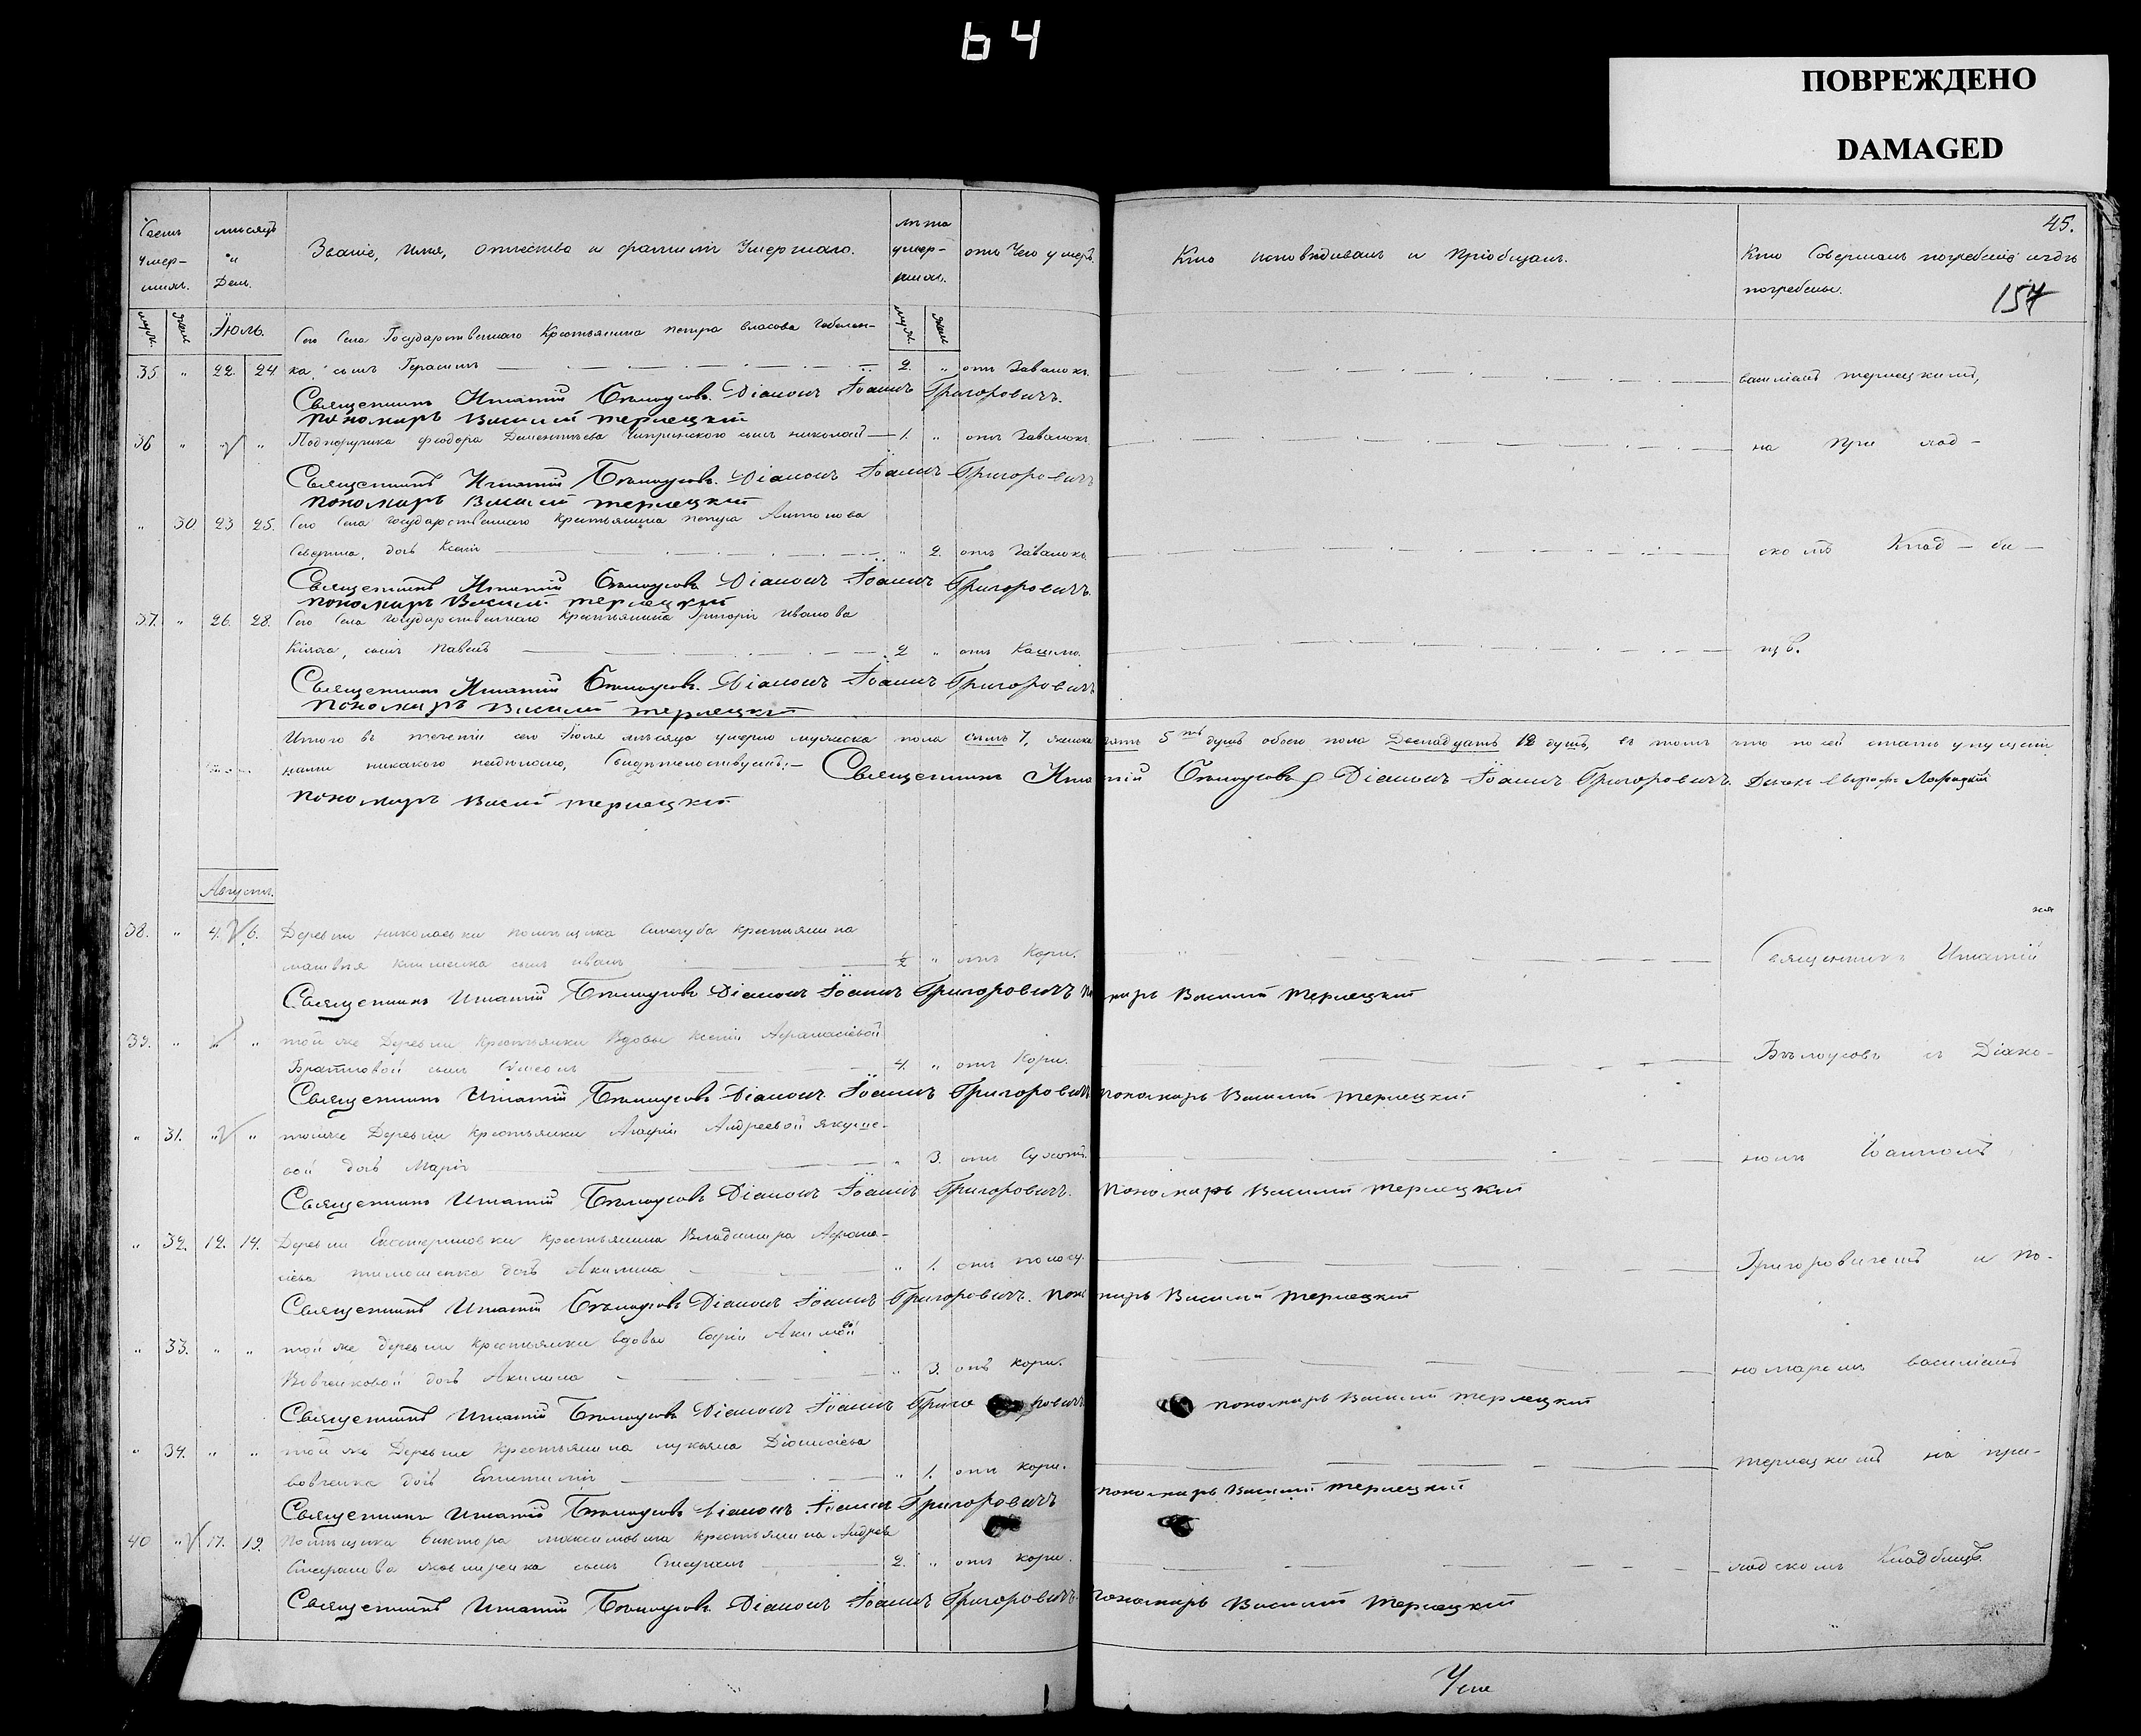 64
ПОВРЕЖДЕНО
DAMAGED
45.
157
Счетъ умер-шихъ.
мѣсяцъ и День.
Званіе, имя, отчество и фамилія Умершаго.
лѣта умер-шихъ.
отъ Чего умеръ.
Кто исповѣдивалъ и Пріобщалъ.
Кто Совершалъ погребеніе и гдѣ погребены.
муж. жен. Іюль. муж. жен.
Сего Села Государственнаго Крестьянина петра власова
35 " 22. 24. ка, сынъ Герасимъ 2. " отъ Завалокъ. василіемъ терлецкимъ,
Священникъ Игнатій Бѣлоусовъ. Діаконъ Іоаннъ Григоровичъ.
пономарь Василій терлецкій
36 " " " Подпоручика феодора Дементьева сынъ николай 1. " отъ Завалокъ. на при ход-
Священникъ Игнатій Бѣлоусовъ. Діаконъ Іоаннъ Григоровичъ
пономарь Василій терлецкій
" 30 23 25. Сего Села государственнаго крестьянина петра Антонова
дочь Ксенія " 2. отъ Завалокъ. скомъ Клад-би-
Священникъ Игнатій Бѣлоусовъ Діаконъ Іоаннъ Григоровичъ.
пономарь Василій терлецкій
37. " 26. 28. Сего Села государственнаго крестьянина Григорія иванова
сынъ павелъ 2 " отъ Кашлю. щѣ.
Священникъ Игнатій Бѣлоусовъ. Діаконъ Іоаннъ Григоровичъ
пономарь Василій терлецкій
Итого въ теченіи сего Іюля мѣсяца умерло мужеска пола семь 7, женска пять 5 душъ обоего пола Двенадцать 12 душъ, въ томъ что по сей статьѣ упущенія
нами никакого недѣлано, Свидѣтельствуемъ: Священникъ Игнатій Бѣлоусовъ Діаконъ Іоаннъ Григоровичъ. Дьякъ
пономарь Василій терлецкій
Августъ.
38. " 4. 6. Деревни николаевки помѣщика крестьянина
матвѣя сынъ иванъ ½ " отъ Кори. Священникъ Игнатій
Священникъ Игнатій Бѣлоусовъ Діаконъ Іоаннъ Григоровичъ пономарь Василій терлецкій
39. " " " той же Деревни крестьянки Вдовы Ксеніи Афанасіевой
сынъ Симеонъ 4. " отъ Кори. Бѣлоусовъ съ Діако-
Священникъ Игнатій Бѣлоусовъ Діаконъ Іоаннъ Григоровичъ пономарь Василій терлецкій
" 31. " " тойже Деревни крестьянки Агафіи Андреевой якуше-
вой дочь Марія " 3. отъ Сухоты. номъ Іоанномъ
Священникъ Игнатій Бѣлоусовъ Діаконъ Іоаннъ Григоровичъ. пономарь Василій терлецкій
" 32. 12. 14. Деревни Екатериновки крестьянина Владимира Афана-
сіева тимошенка дочь Акилина " 1. отъ Григоровичемъ и По-
Священникъ Игнатій Бѣлоусовъ Діаконъ Іоаннъ Григоровичъ. пономарь Василій терлецкій
" 33. " " той же деревни крестьянки вдовы Софіи Акимовой
Вовченковой дочь Акилина " 3 отъ кори. номаремъ василіемъ
Священникъ Игнатій Бѣлоусовъ Діаконъ Іоаннъ Григоровичъ пономарь Василій терлецкій
" 34. " " той же Деревни крестьянина лукьяна Діонисіева
вовченка дочь " 1. отъ кори. терлецкимъ на при-
Священникъ Игнатій Бѣлоусовъ Діаконъ Іоаннъ Григоровичъ пономарь Василій терлецкій
40 " 17. 19. Помѣщика виктора максимовича крестьянина Андрея
сынъ Стефанъ 2. " отъ кори. ходскомъ Кладбищѣ.
Священникъ Игнатій Бѣлоусовъ Діаконъ Іоаннъ Григоровичъ. пономарь Василій терлецкій